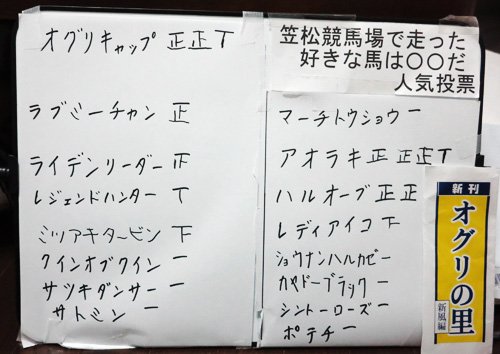 オグリキャップ 正正丅
ラブミーチャン 正
ライデンリーダー 正
レジェンドハンター 丅
ミツアキタービン 下
クインオブクイン 一
サツキダンサー 一
サトミン 一
笠松競馬場で走った
好きな馬は〇〇だ
人気投票
マーチトウショウ 一
アオラキ 正正正丅
ハルオーブ 正正
レディアイコ 下
ショウナンハルカゼ 一
カヤドーブラック 一
シントーローズ 一
ポテチ 一
新刊
オグリの里
新風編